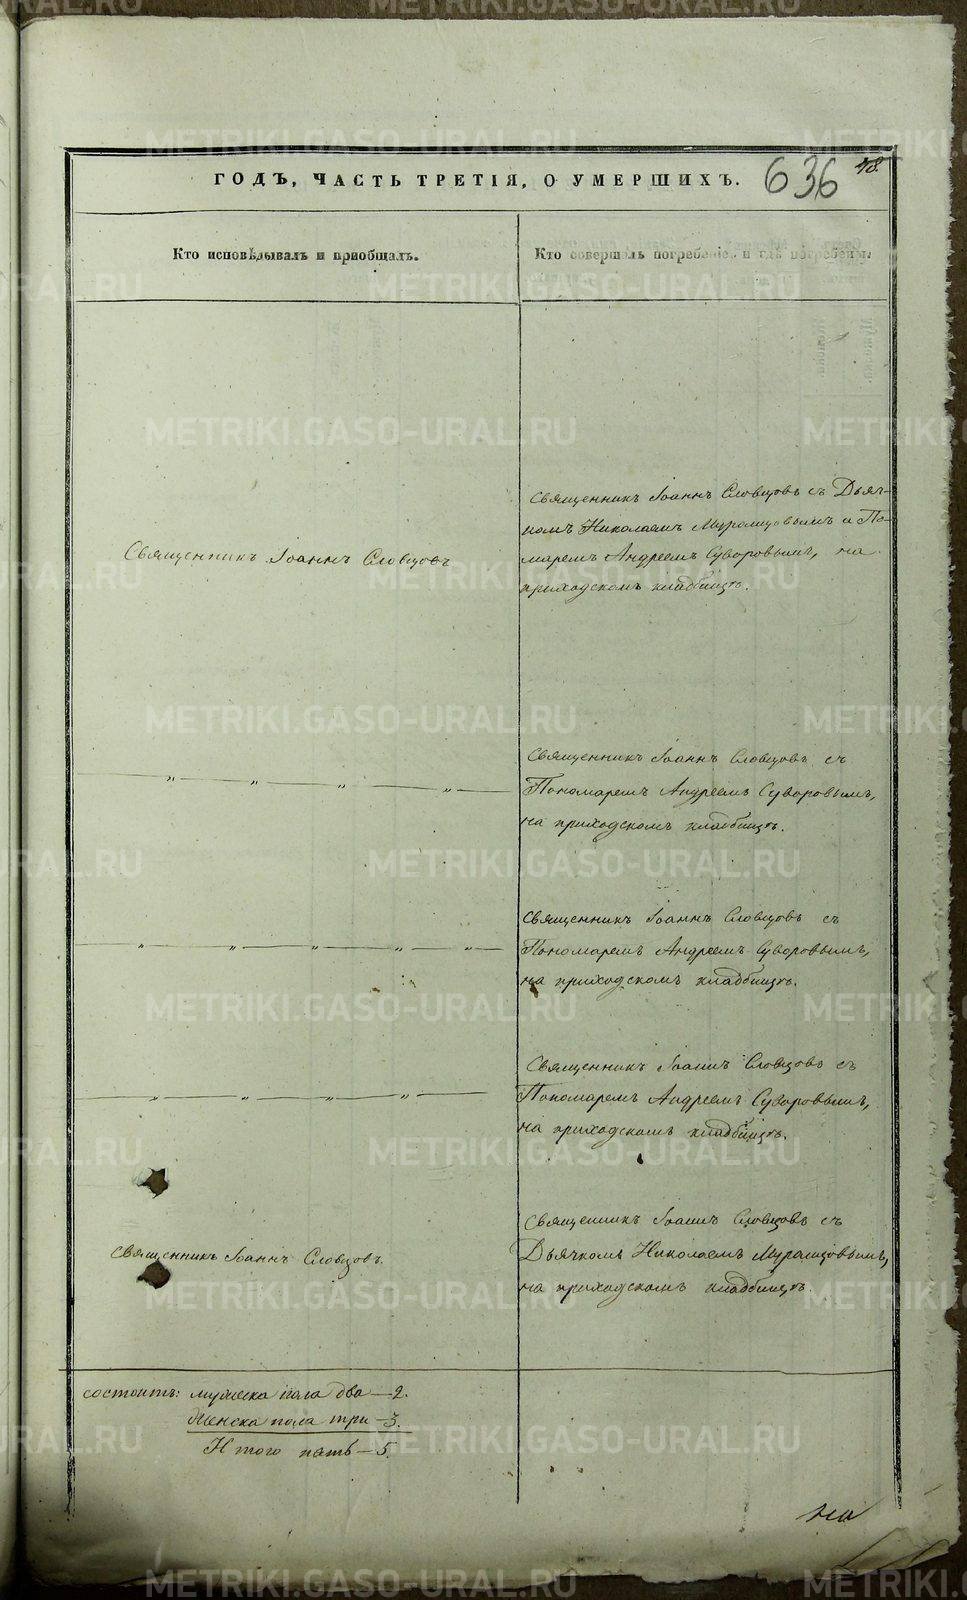 ГОДЪ, ЧАСТЬ ТРЕТІЯ, О УМЕРШИХЪ.
636
48.
Кто исповѣдывалъ и пріобщалъ.
Кто совершалъ погребеніе и гдѣ погребены.
Священникъ Іоаннъ Словцовъ
Священникъ Іоаннъ Словцовъ съ Дьяч-
комъ Николаемъ Муромцовымъ и По-
маремъ Андреемъ Суворовымъ, на
приходскомъ кладбищѣ.
Священникъ Іоаннъ Словцовъ съ
Пономаремъ Андреемъ Суворовымъ,
на приходскомъ кладбищѣ.
Священникъ Іоаннъ Словцовъ съ
Пономаремъ Андреемъ Суворовымъ,
на приходскомъ кладбищѣ.
Священникъ Іоаннъ Словцовъ съ
Пономаремъ Андреемъ Суворовымъ,
на приходскомъ кладбищѣ.
Священникъ Іоаннъ Словцовъ.
Священникъ Іоаннъ Словцовъ съ
Дьячкомъ Николаемъ Муромцовымъ,
на приходскомъ кладбищѣ.
состоитъ: мужеска пола два — 2.
Женска пола три — 3.
Итого пять — 5.
METRIKI.GASO-URAL.RU